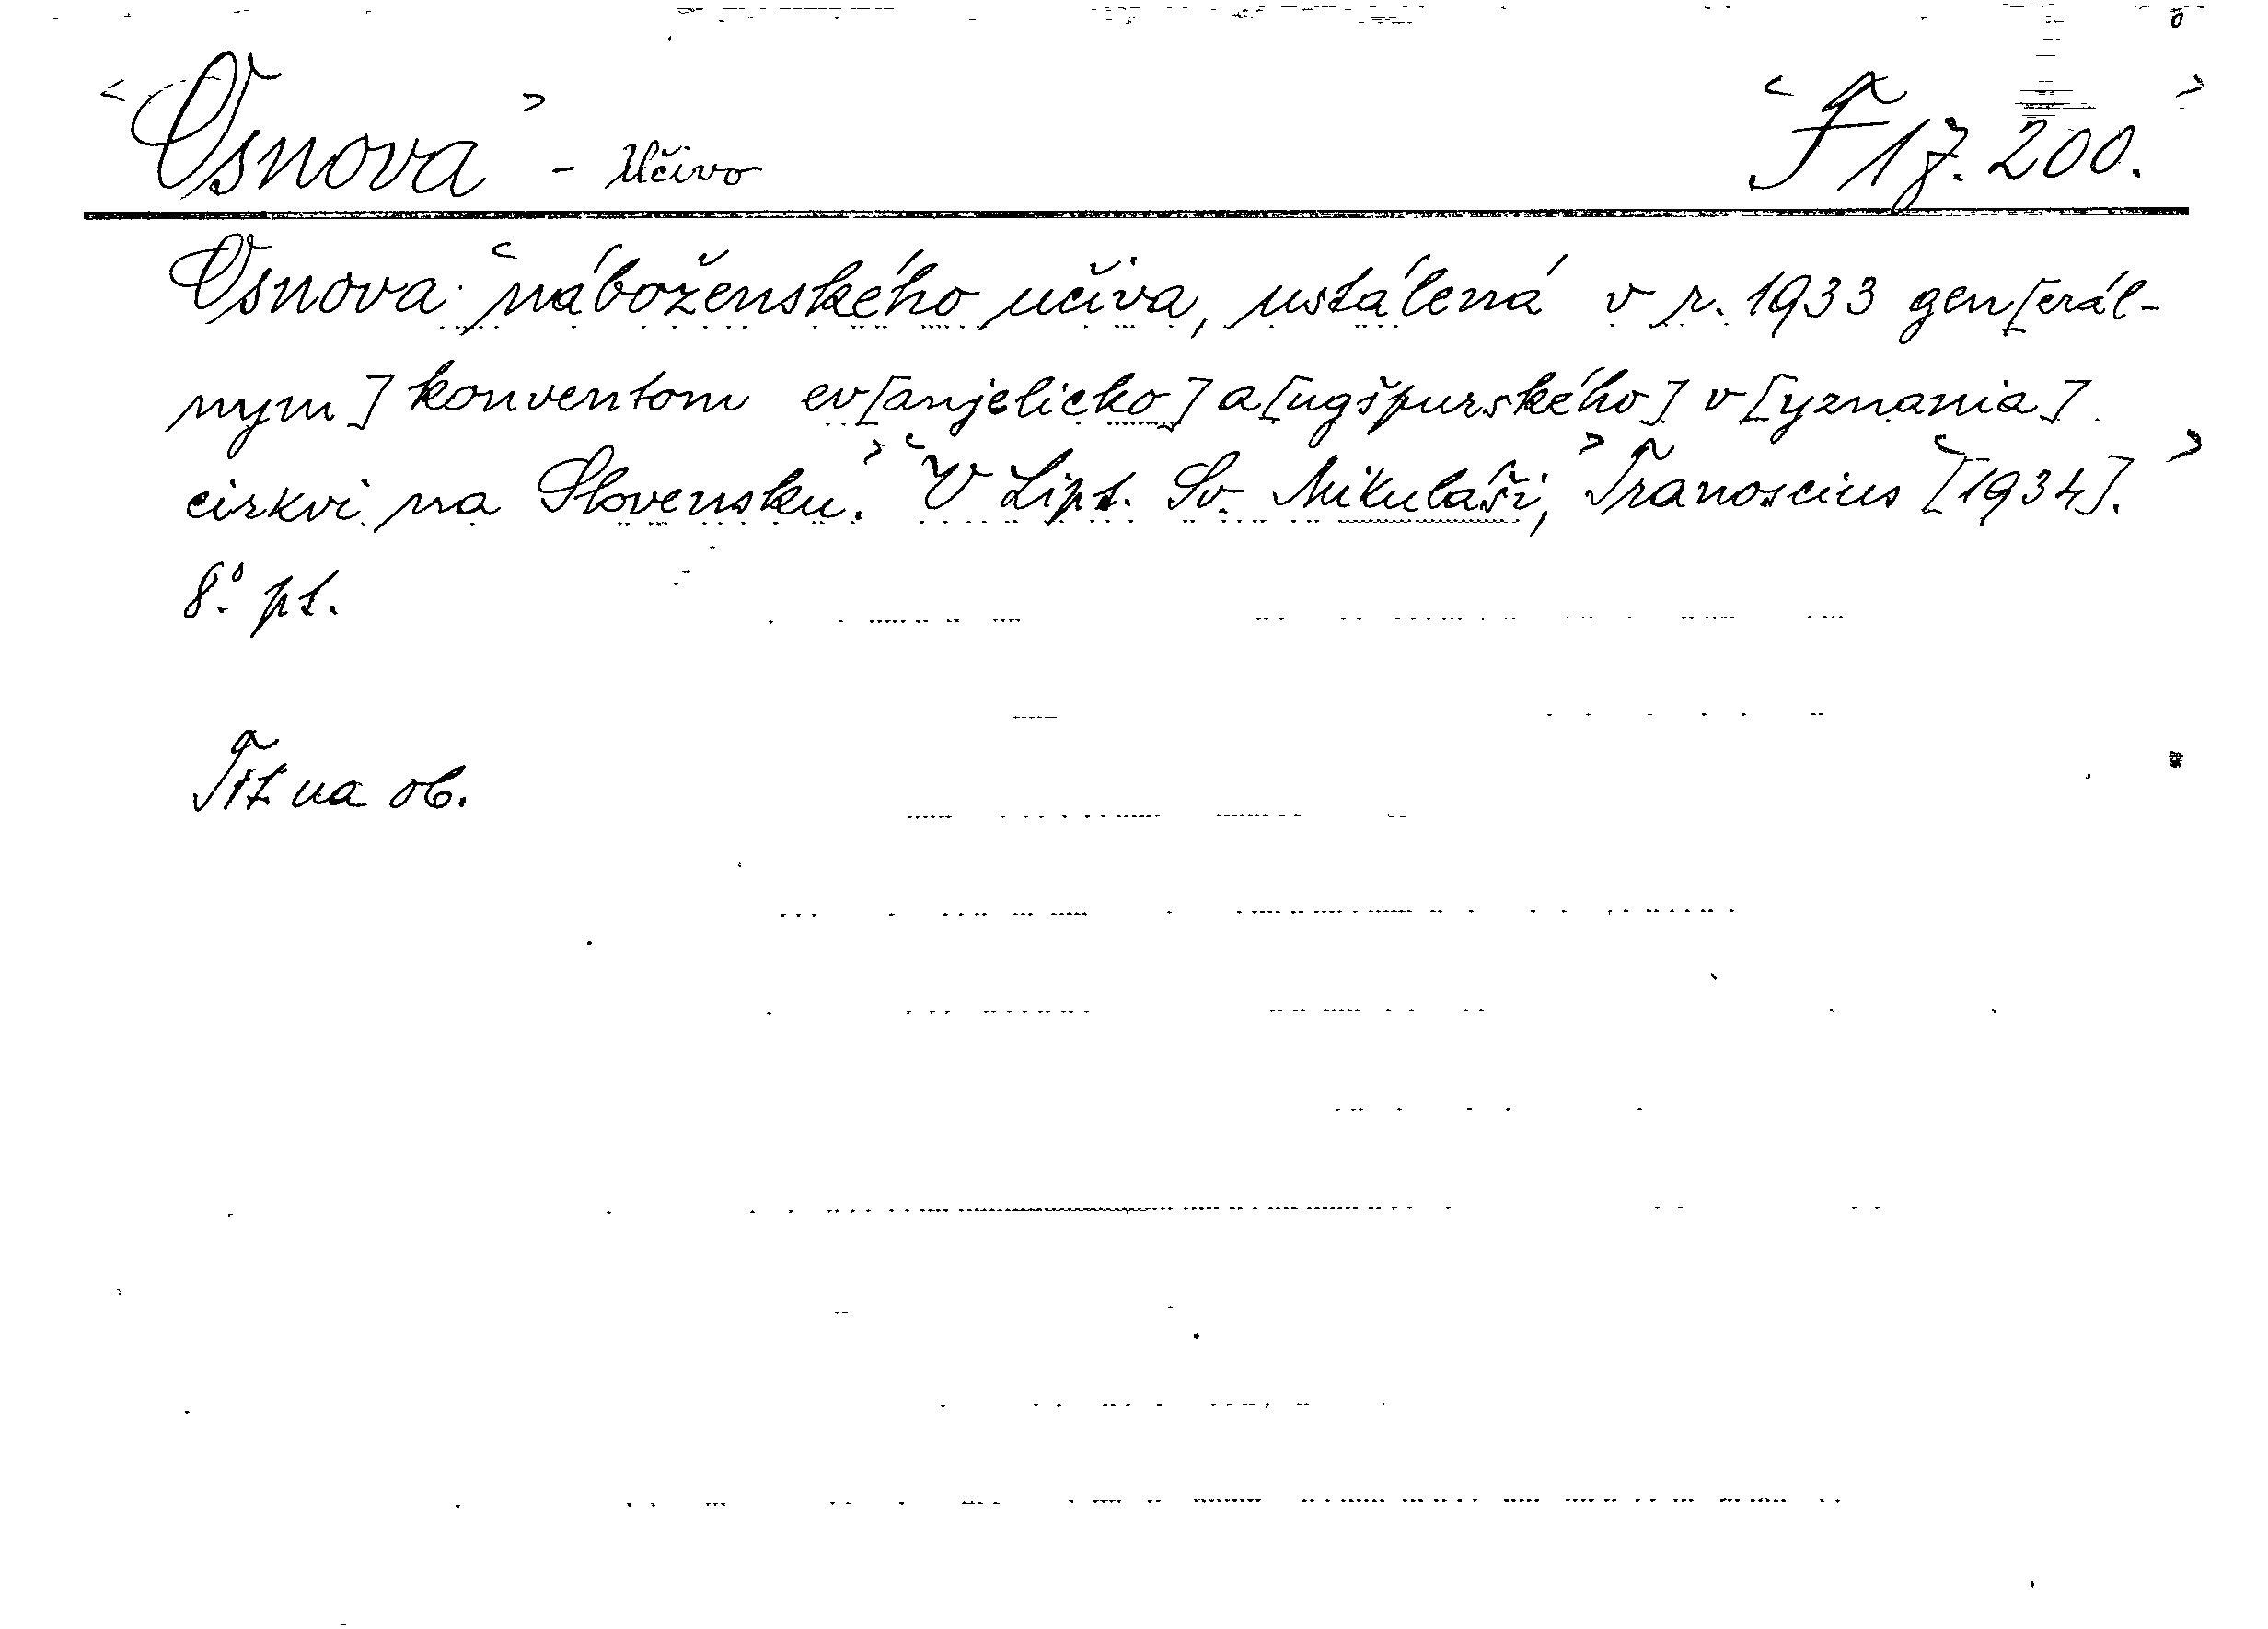 <Osnova> - Učivo <F 17.200.>
Osnova <náboženského učiva, ustálená v r. 1933 gen[erál-
nym] konventom ev[anjelicko] a[ugšpurského] v[yznania]
cirkvi na Slovensku.> <V Lipt. Sv. Mikuláši,> Tranoscius <[1934].>
8°. pt.
Tit na ob.